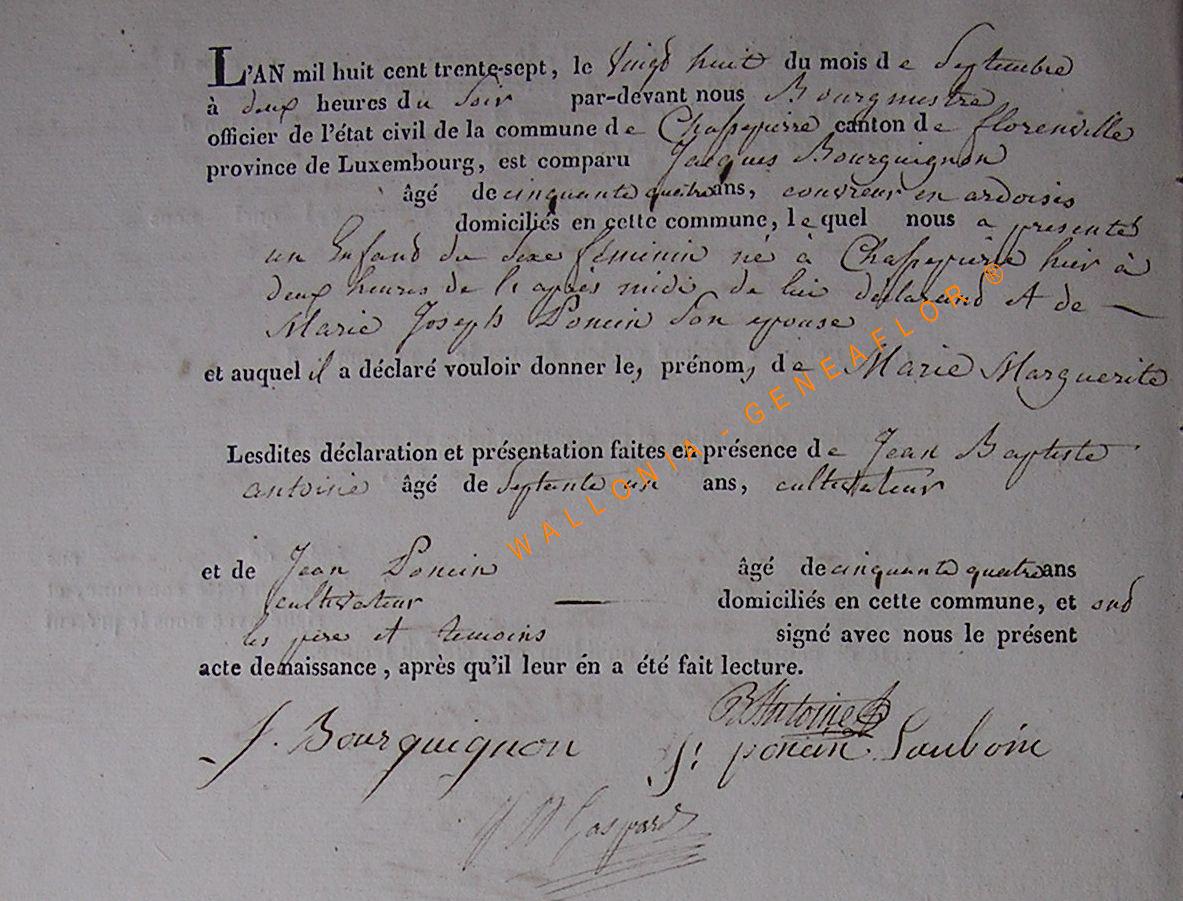 L'AN mil huit cent trente-sept, le Vingd huit du mois de Septembre
à deux heures du Soir par-devant nous Bourgmestre
officier de l'état civil de la commune de Chassepierre canton de florenville
province de Luxembourg, est comparu Jacques Bourguignon
âgé de cinquante quatre ans, couvreur en ardoises
domiciliés en cette commune, lequel nous a presenté
un Enfand du Sexe féminin né à Chassepierre hier à
deux heures de l'après midi de lui déclarand et de
Marie Joseph Poncin Son epouse
et auquel il a déclaré vouloir donner les prénoms de Marie Marguerite
Lesdites déclaration et présentation faites en présence de Jean Baptiste
antoine âgé de Septante un ans, cultivateur
et de Jean Poncin âgé de cinquante quatre ans
cultivateur domiciliés en cette commune, et ond
les père et temoins signé avec nous le présent
acte de naissance, après qu'il leur én a été fait lecture.
B Antoine
J. Bourguignon J: poncin
Gaspard
WALLONIA - GENEAFLOR ®